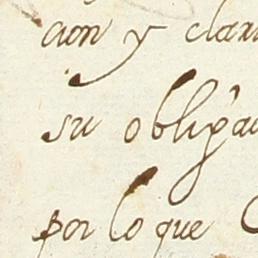 cion y clari
su obligac
por lo que